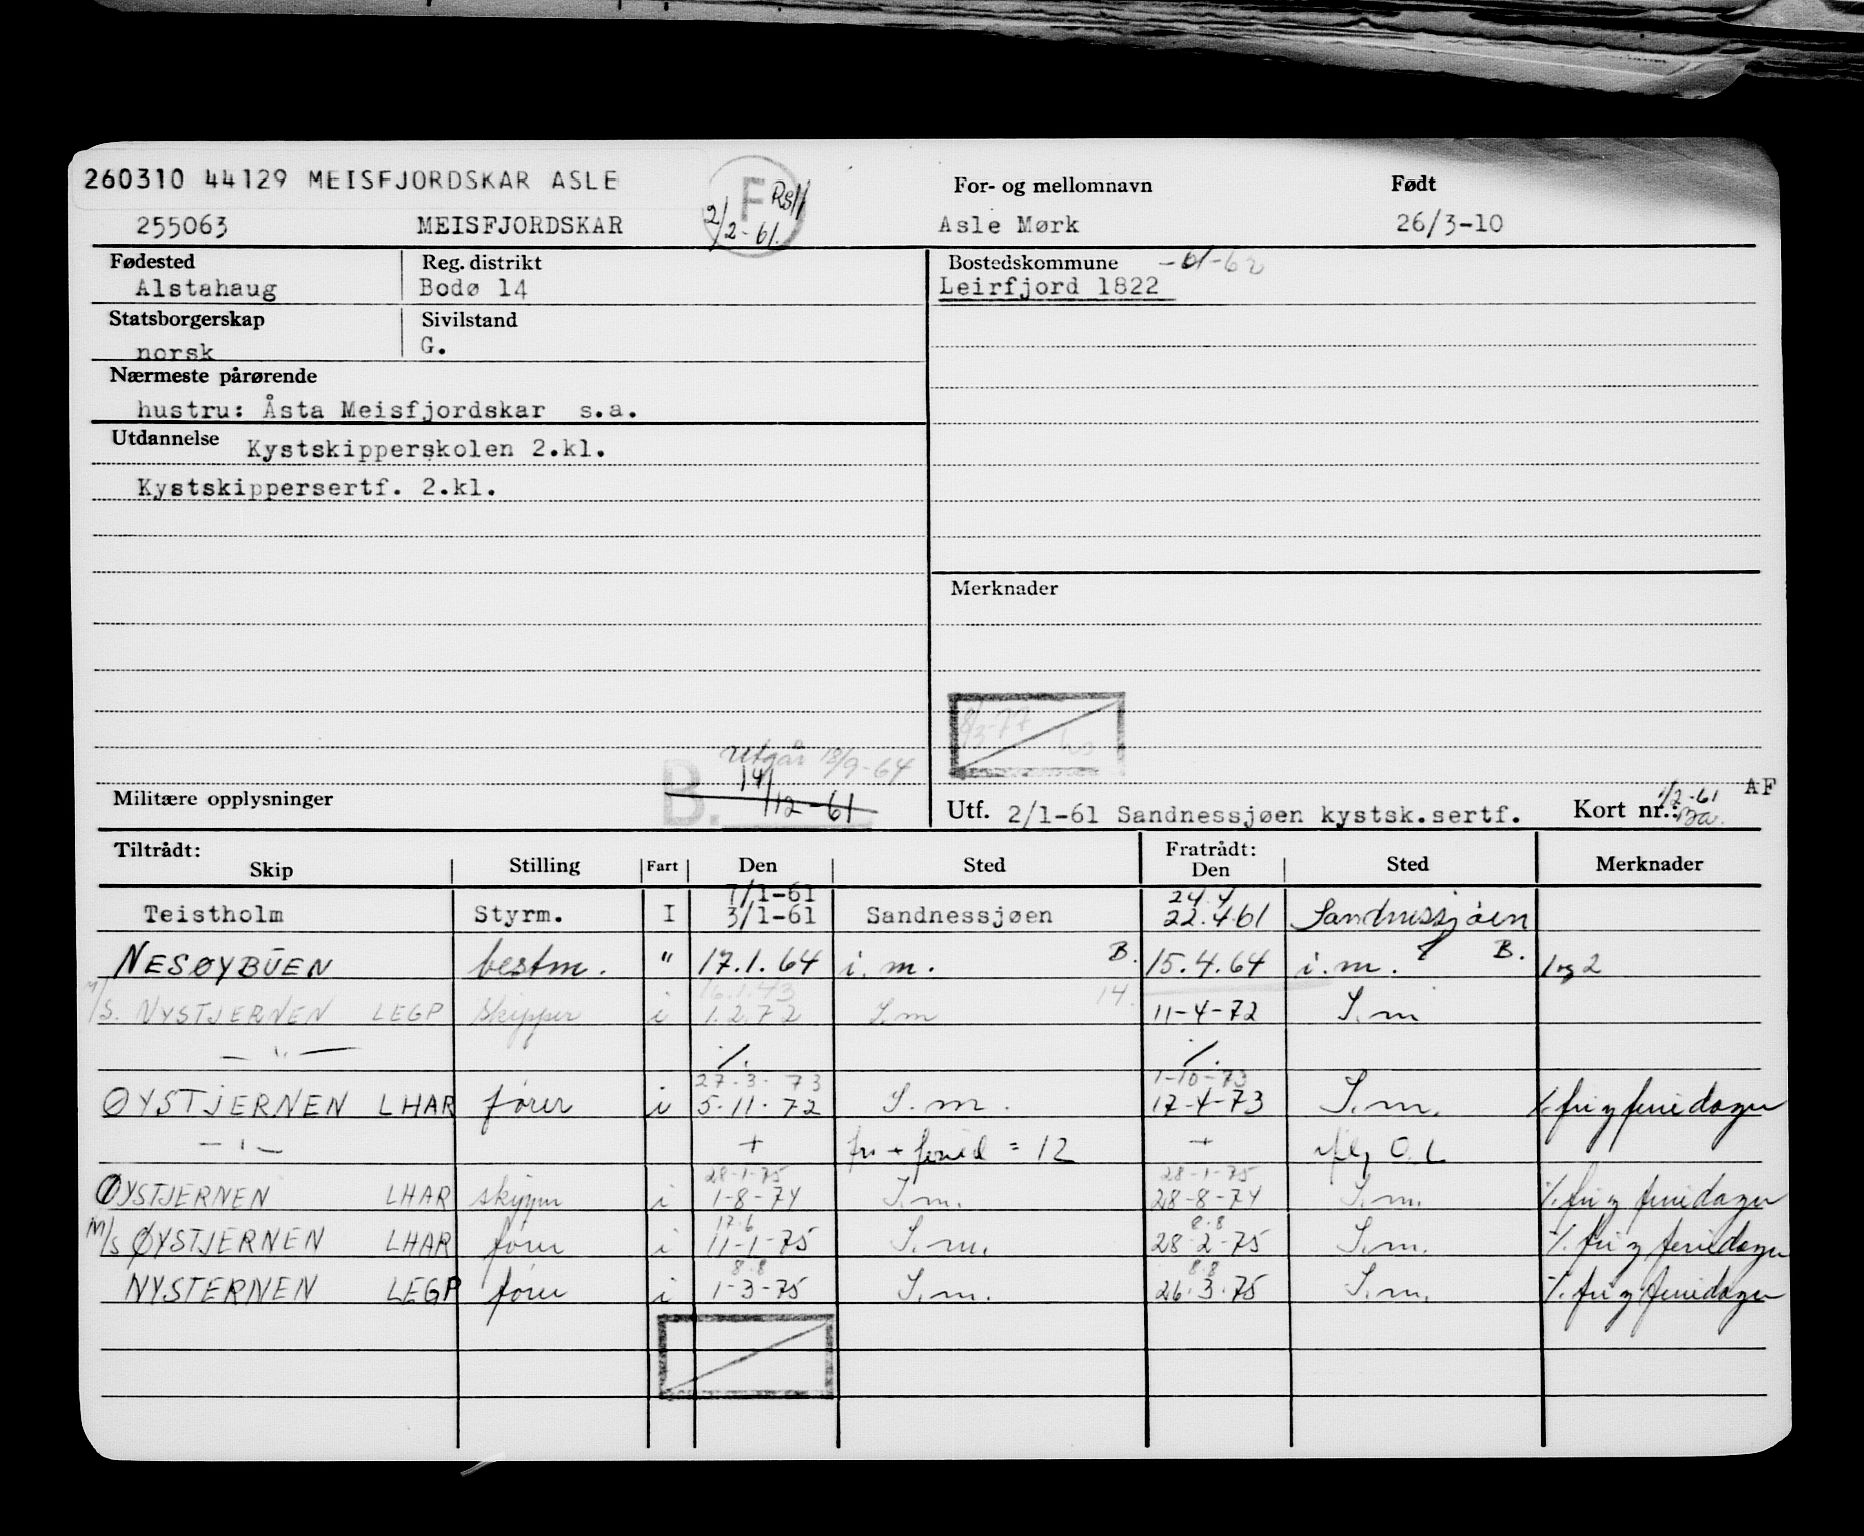 260310 44129 MEISFJORDSKAR ASLE
F
2/2-61.
For- og mellomnavn Født
255063 MEISFJORDSKAR Asle Mørk 26/3-10
Fødested Reg. distrikt Bostedskommune
Alstahaug Bodø 14 Leirfjord 1822
Statsborgerskap Sivilstand
norsk G.
Nærmeste pårørende
hustru: Åsta Meisfjordskar s.a.
Utdannelse Kystskipperskolen 2.kl.
Kystskippersertf. 2.kl.
Merknader
utgår 18/9-64
B. 14/12-61
Militære opplysninger
Utf. 2/1-61 Sandnessjøen kystsk.sertf. Kort nr.: AF
Tiltrådt: Fratrådt:
Skip Stilling Fart Den Sted Den Sted Merknader
7/1-61 24.4
Teistholm Styrm. I 3/1-61 Sandnessjøen 22.4.61 Sandnessjøen
NESØYBUEN bestm. " 17.1.64 i.m. B. 15.4.64 i.m. B. 1 og 2
M/S. NYSTJERNEN LEGP skipper i 1.2.72 S.m 14. 11-4-72 S.m
— " — ./. ./.
27.3.73 1-10-73
ØYSTJERNEN LHAR fører i 5.11.72 S.m. 17-4-73 S.m. ./. fri og feriedager
— " — + = 12 +
28-1-75 28-1-75
ØYSTJERNEN LHAR skipper i 1-8-74 S.m. 28-8-74 S.m. ./. fri og feriedager
17.6 8.8
M/S ØYSTJERNEN LHAR fører i 11-1-75 S.m. 28-2-75 S.m. ./. fri og feriedager
8.8 8.8
NYSTERNEN LEGP fører i 1-3-75 S.m. 26.3.75 S.m. ./. fri og feriedager